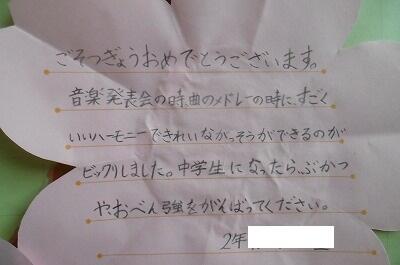 ごそつぎょうおめでとうございます。
音楽発表会の時、曲のメドレーの時に、すごく
いいハーモニーできれいながっそうができるのが
ビックリしました。中学生になったら、ぶかつ
や、おべん強をがんばってください。
2年